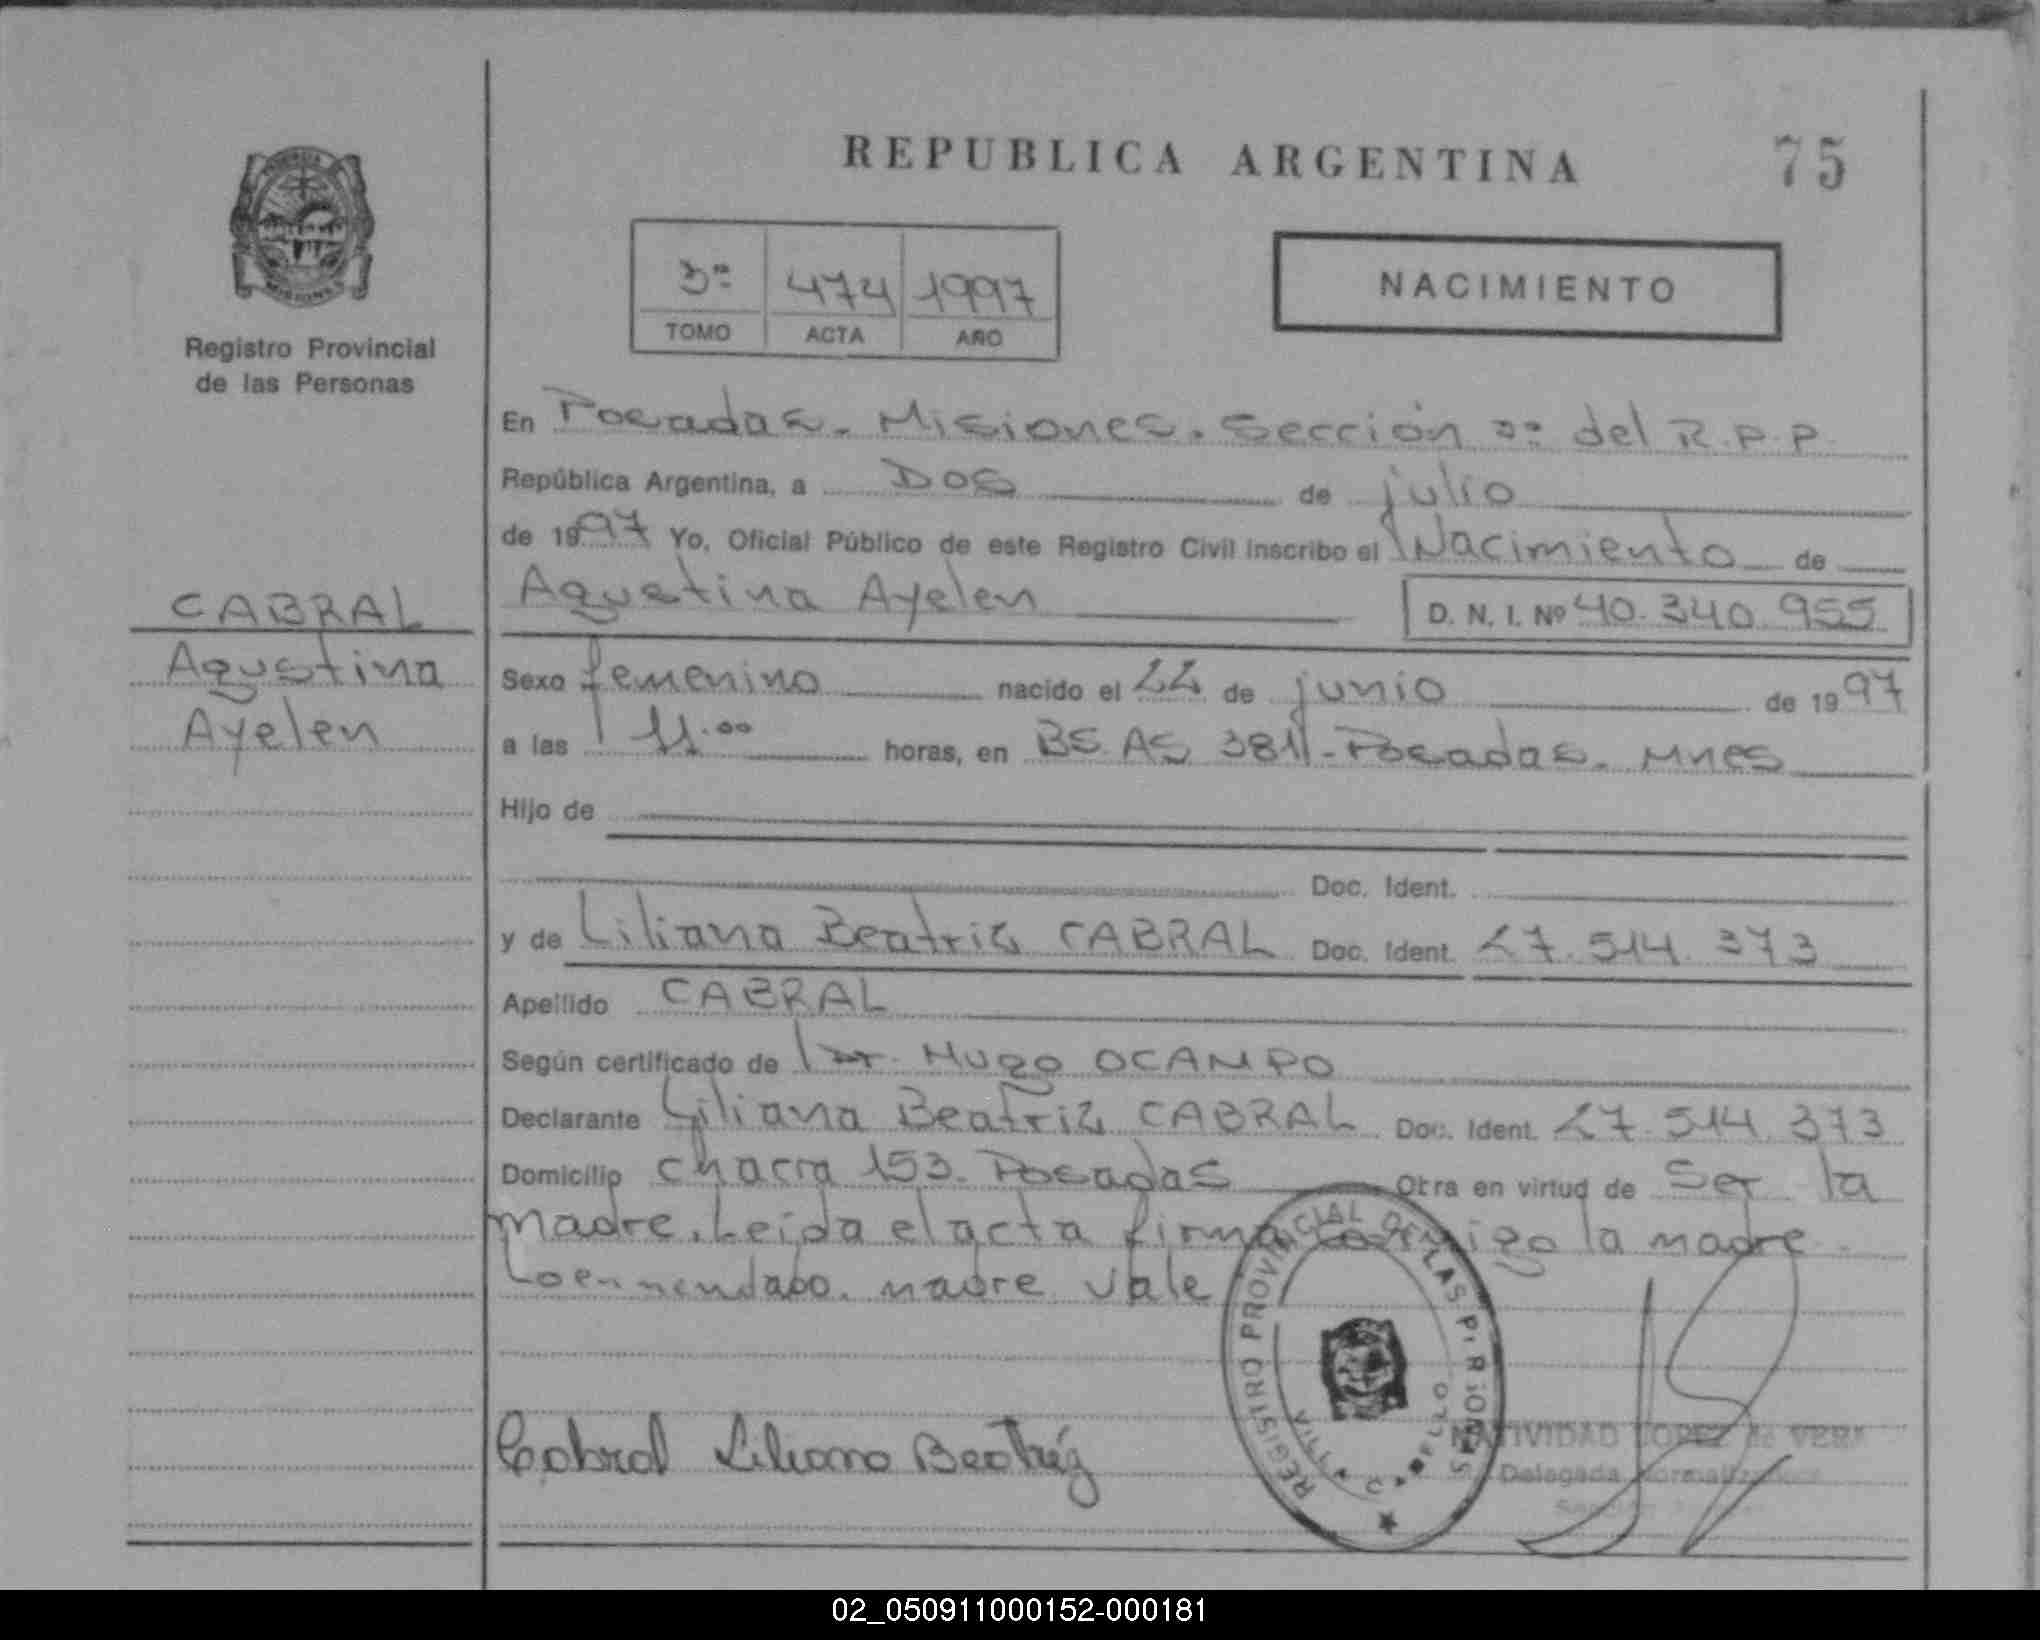 REPUBLICA ARGENTINA
75
3º 474 1997
TOMO ACTA AÑO
NACIMIENTO
Registro Provincial
de las Personas
CABRAL
Agustina
Ayelen
En Posadas. Misiones. Sección 3º del R.P.P.
República Argentina, a Dos de julio
de 1997 Yo, Oficial Público de este Registro Civil inscribo el Nacimiento de
Agustina Ayelen D. N. I. Nº 40.340.955
Sexo femenino nacido el 22 de junio de 1997
a las 11.00 horas, en BS. AS 3811 - Posadas. Mnes
Hijo de
Doc. Ident.
y de Liliana Beatriz CABRAL Doc. Ident. 27.514.373
Apellido CABRAL
Según certificado de Dr. Hugo OCAMPO
Declarante Liliana Beatriz CABRAL Doc. Ident. 27.514.373
Domicilio chacra 153. Posadas Obra en virtud de Ser la
madre. Leida el acta firma conmigo la madre.
Lo enmendado. madre vale
Cabral Liliana Beatriz
REGISTRO PROVINCIAL DE LAS PERSONAS
VILLA CABELLO
NATIVIDAD LOPEZ de VERA
Delegada Normalizadora
02_050911000152-000181